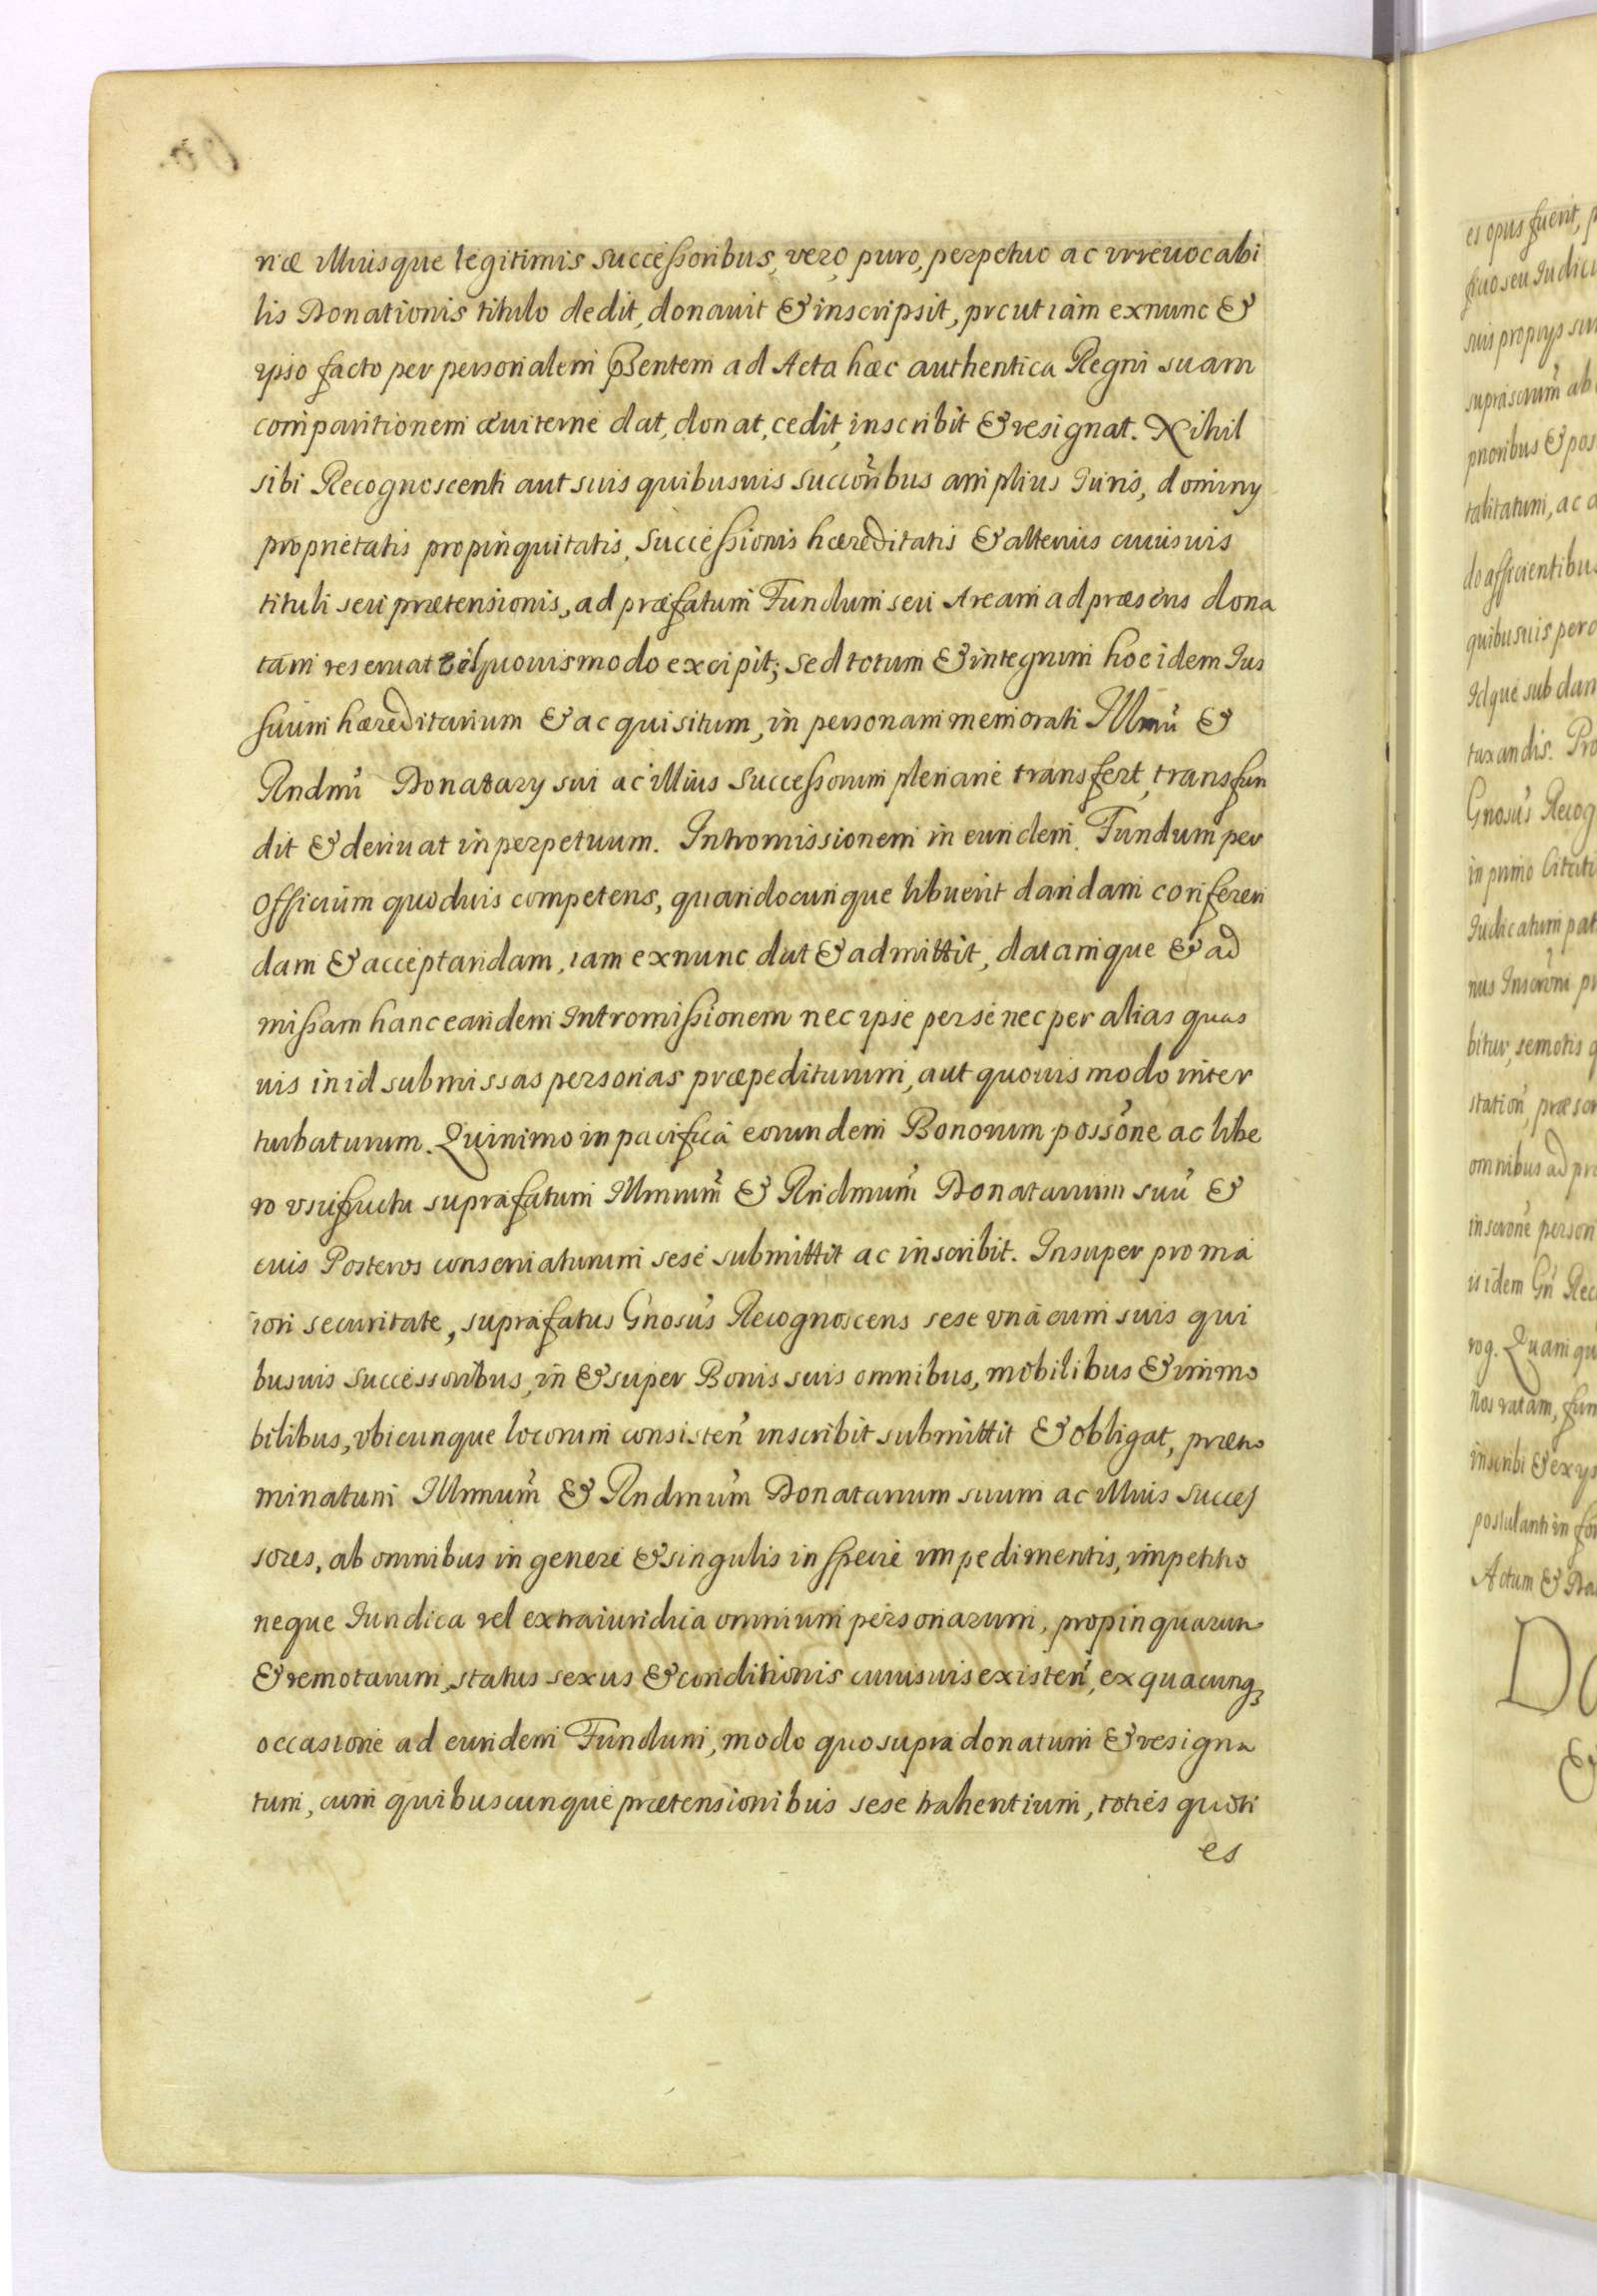 næ illiusque legitimis successoribus, vero, puro, perpetuo ac irreuocabi
lis Donationis titulo dedit, donauit & inscripsit, prout iam exnunc &
ipso facto per personalem p̄sentem ad Acta hæc authentica Regni suam
comparitionem æuiterne dat, donat, cedit, inscribit & resignat. Nihil
sibi Recognoscenti aut suis quibusuis succoribus amplius Iuris, dominy
proprietatis propinquitatis, Successionis hæreditatis & alterius cuiusuis
tituli seu prætensionis, ad præfatum Fundum seu Aream ad præsens dona
tam reseruat vel quouismodo excipit; sed totum & integrum hoc idem Ius
suum hæreditarium & acquisitum, in personam memorati Illmi &
Rndmi Donatary sui ac illius Successorum plenarie transfert, transfun
dit & deriuat in perpetuum. Intromissionem in eundem Fundum per
Officium quoduis competens, quandocunque libuerit dandam conferen
dam & acceptandam, iam exnunc dat & admittit, datamque & ad
missam hanc eandem Intromissionem nec ipse per se nec per alias quas
uis in id submissas personas præpediturum, aut quouis modo inter
turbaturum. Quinimo in pacifica eorundem Bonorum possone ac libe
ro vsufructu suprafatum Illmum & Rndmum Donatarium suu &
euis Posteros conseruaturum sese submittit ac inscribit. Insuper pro ma
iori securitate, suprafatus Gnosus Recognoscens sese vna cum suis qui
busuis successoribus, in & super Bonis suis omnibus, mobilibus & immo
bilibus, vbicunque locorum consisten inscribit submittit & obligat, præno
minatum Illmum & Rndmum Donatarium suum ac illius Succes
sores, ab omnibus in genere & singulis in specie impedimentis, impetitio
neque Iuridica vel extraiuridica omnium personarum, propinquarum
& remotarum, status sexus & conditionis cuiusuis existen, ex quacunq3
occasione ad eundem Fundum, modo quo supra donatum & resigna
tum, cum quibuscunque prætensionibus sese trahentium, toties quoti
es

es opus fuerit,
suis propriys
supra
prioribus & pos
talitatum, ac
do afficientibus
quibusuis pero
Idque sub dam
taxandis. Pro
Gnosus Recog
in primo Citati
Iudicatum pat
bitur, semotis
omnibus ad
person
is idem Gn Rec
rog. Quam
Nos ratam,
inscribi &
postulanti in
Actum & Da
&